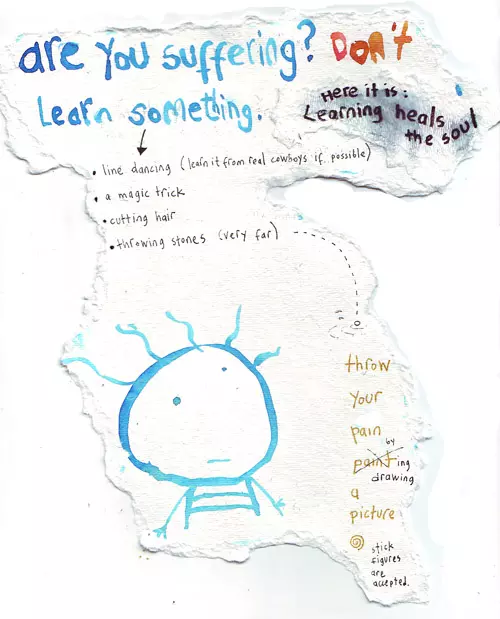 are you suffering? Don't
Learn something.
Here it is:
Learning heals
the soul
• line dancing (learn it from real cowboys if possible)
• a magic trick
• cutting hair
• throwing stones (very far)
throw
your
pain
by
painting
drawing
a
picture
stick
figures
are
accepted.